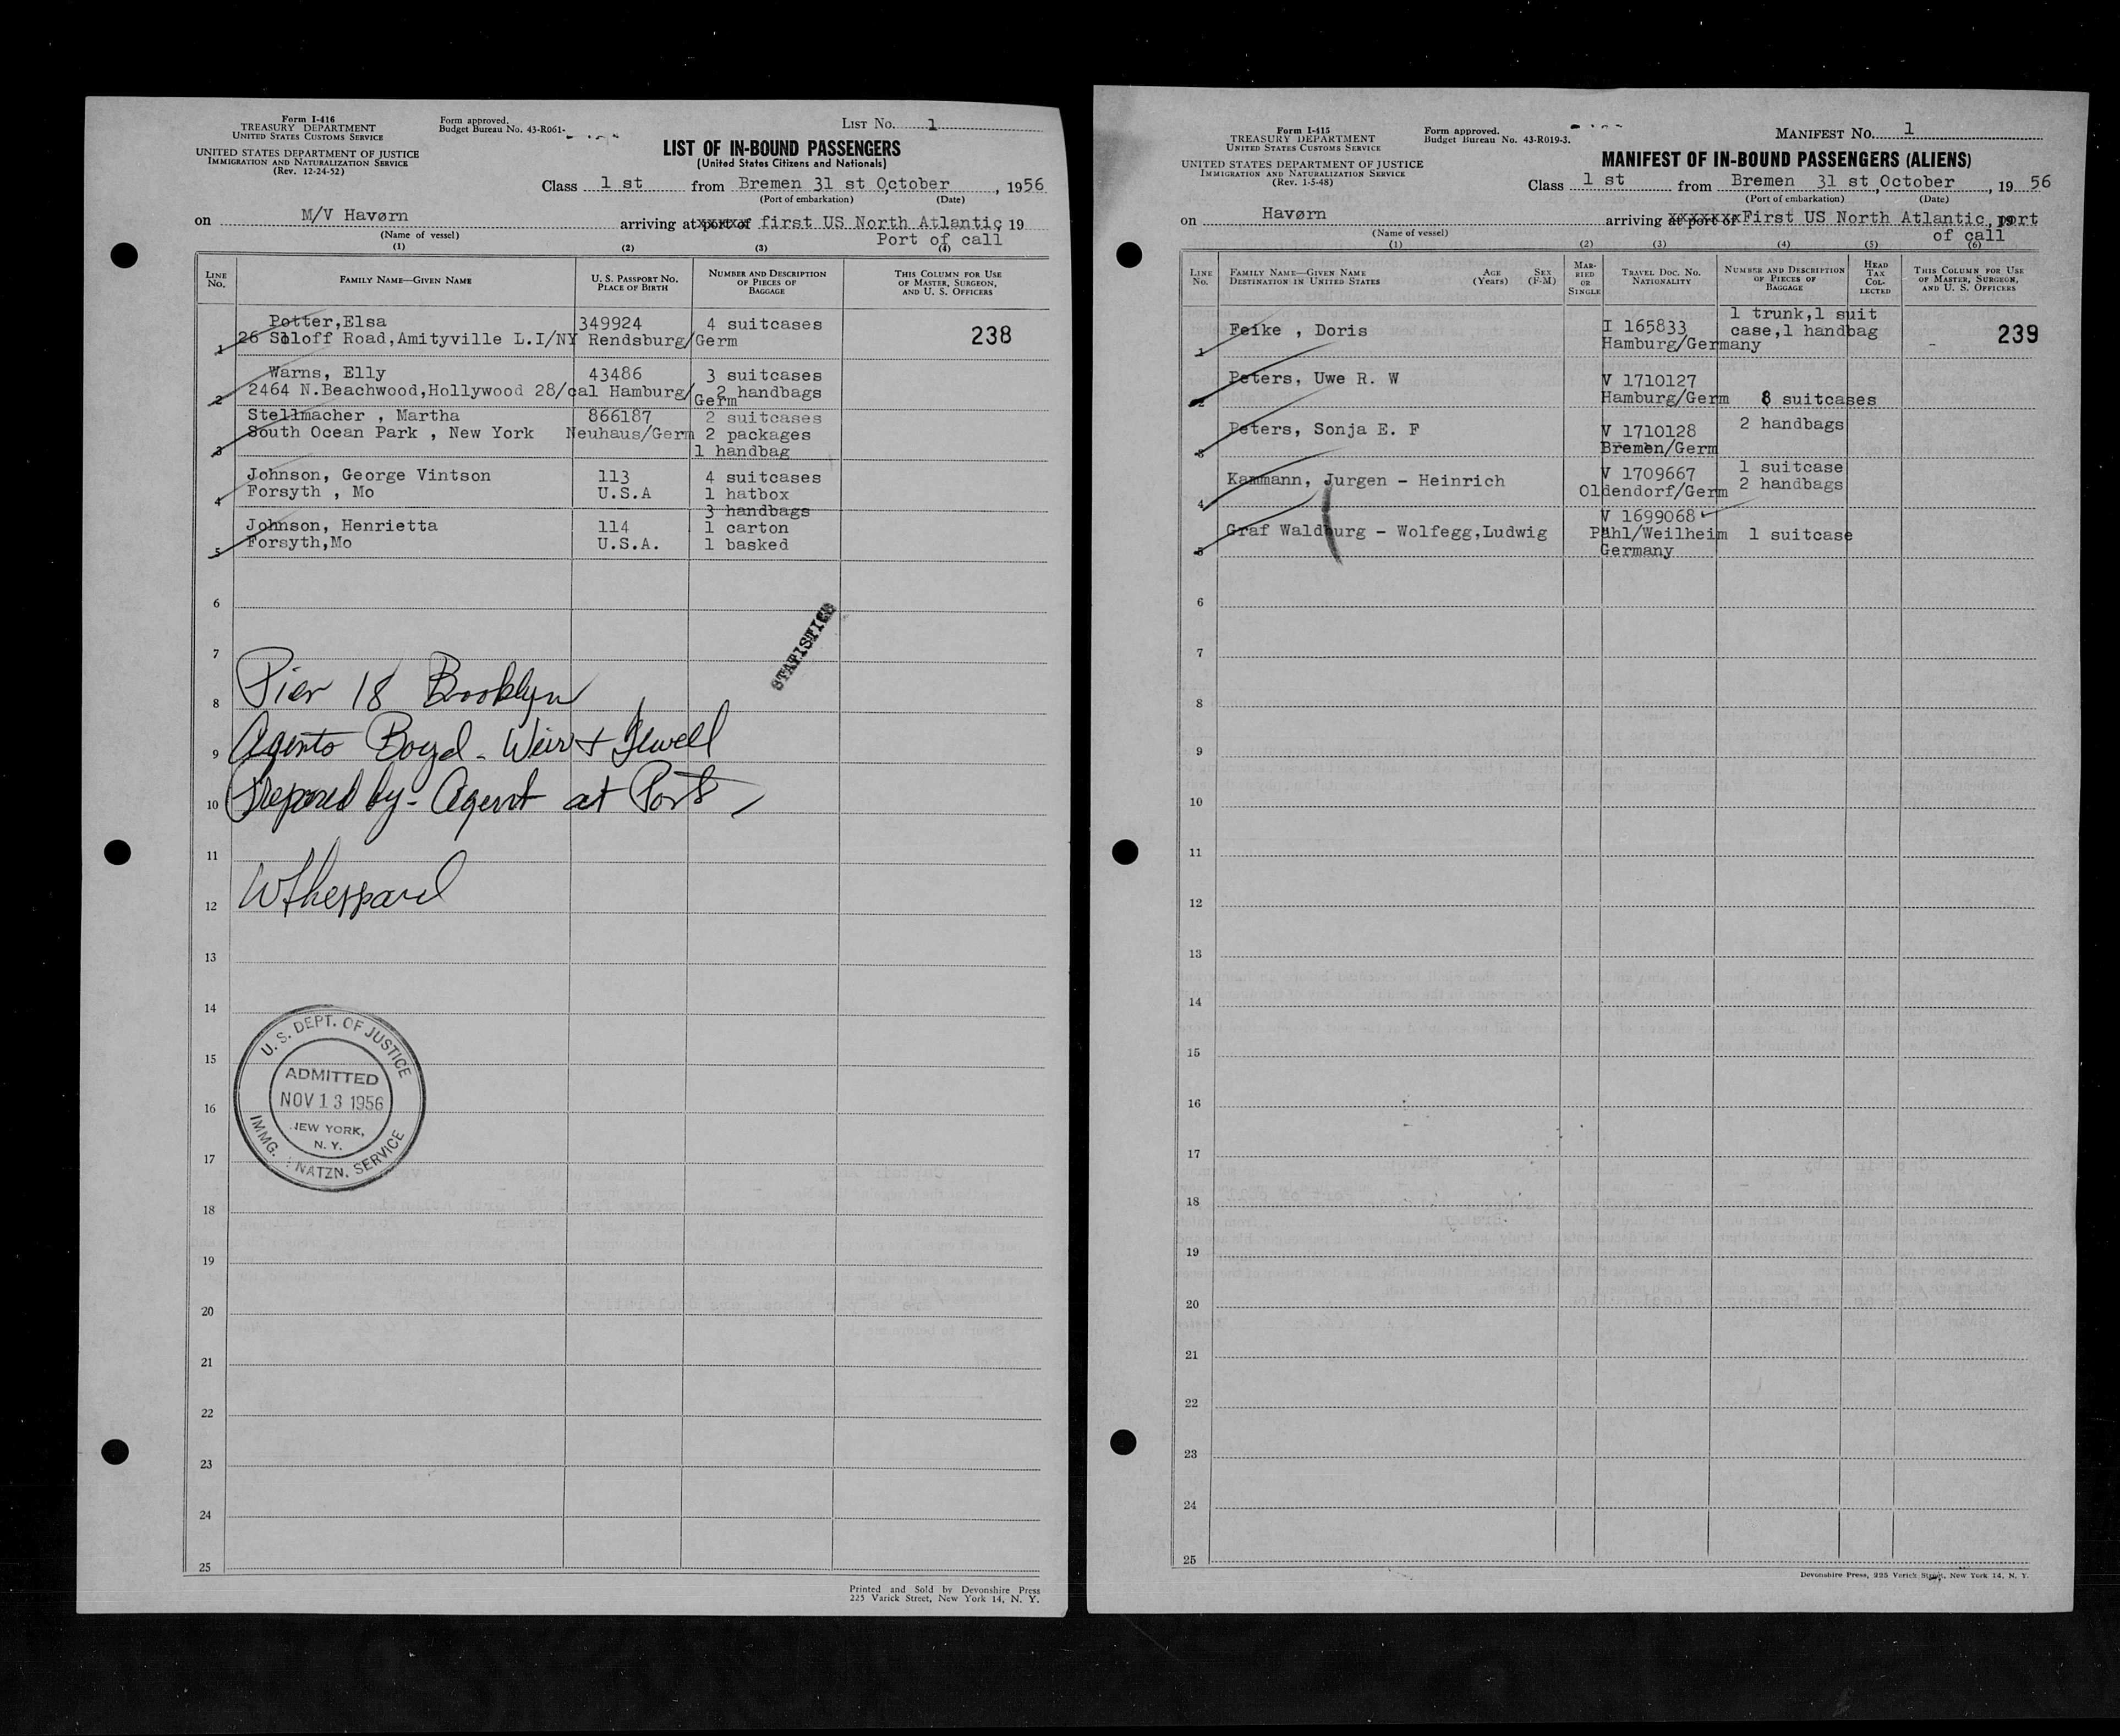 Form I-416
TREASURY DEPARTMENT
UNITED STATES CUSTOMS SERVICE
UNITED STATES DEPARTMENT OF JUSTICE
IMMIGRATION AND NATURALIZATION SERVICE
(Rev. 12-24-52)
Form approved.
Budget Bureau No. 43-R061-
LIST No. 1
LIST OF IN-BOUND PASSENGERS
(United States Citizens and Nationals)
Class 1 st from Bremen 31 st October, 1956
(Port of embarkation) (Date)
on M/V Havørn arriving at port of first US North Atlantic, 19
Port of call
(Name of vessel)
(1) (2) (3) (4)
LINE No. FAMILY NAME—GIVEN NAME U. S. PASSPORT NO. PLACE OF BIRTH NUMBER AND DESCRIPTION OF PIECES OF BAGGAGE THIS COLUMN FOR USE OF MASTER, SURGEON, AND U. S. OFFICERS
Potter,Elsa 349924 4 suitcases 238
1 26 Sloff Road,Amityville L.I/NY Rendsburg/Germ
Warns, Elly 43486 3 suitcases
2 2464 N.Beachwood,Hollywood 28/cal Hamburg/Germ 2 handbags
Stellmacher , Martha 866187 2 suitcases
3 South Ocean Park , New York Neuhaus/Germ 2 packages
1 handbag
Johnson, George Vintson 113 4 suitcases
4 Forsyth , Mo U.S.A 1 hatbox
3 handbags
Johnson, Henrietta 114 1 carton
5 Forsyth,Mo U.S.A. 1 basked
6
STATISTICS
7
Pier 18 Brooklyn
8
Agents Boyd - Weir + Sewell
9
Prepared by - Agent at Port
10
11
WSheppard
12
13
14
15
16
17
U. S. DEPT. OF JUSTICE
ADMITTED
NOV 13 1956
NEW YORK,
N. Y.
IMMG. NATZN. SERVICE
18
19
20
21
22
23
24
25
Printed and Sold by Devonshire Press
225 Varick Street, New York 14, N. Y.
Form I-415
TREASURY DEPARTMENT
UNITED STATES CUSTOMS SERVICE
UNITED STATES DEPARTMENT OF JUSTICE
IMMIGRATION AND NATURALIZATION SERVICE
(Rev. 1-5-48)
Form approved.
Budget Bureau No. 43-R019-3.
MANIFEST No. 1
MANIFEST OF IN-BOUND PASSENGERS (ALIENS)
Class 1 st from Bremen 31 st October, 1956
(Port of embarkation) (Date)
on Havørn arriving at port of First US North Atlantic, 19 port
of call
(Name of vessel)
(1) (2) (3) (4) (5) (6)
LINE No. FAMILY NAME—GIVEN NAME DESTINATION IN UNITED STATES AGE (Years) SEX (F-M) MARRIED OR SINGLE TRAVEL DOC. NO. NATIONALITY NUMBER AND DESCRIPTION OF PIECES OF BAGGAGE HEAD TAX COLLECTED THIS COLUMN FOR USE OF MASTER, SURGEON, AND U. S. OFFICERS
1 trunk,1 suit
Feike , Doris I 165833 case,1 handbag 239
1 Hamburg/Germany
Peters, Uwe R. W V 1710127
2 Hamburg/Germ 8 suitcases
Peters, Sonja E. F V 1710128 2 handbags
3 Bremen/Germ
Kammann, Jurgen - Heinrich V 1709667 1 suitcase
4 Oldendorf/Germ 2 handbags
V 1699068
5 Graf Waldburg - Wolfegg,Ludwig Pähl/Weilheim 1 suitcase
Germany
6
7
8
9
10
11
12
13
14
15
16
17
18
19
20
21
22
23
24
25
Devonshire Press, 225 Varick Street, New York 14, N. Y.